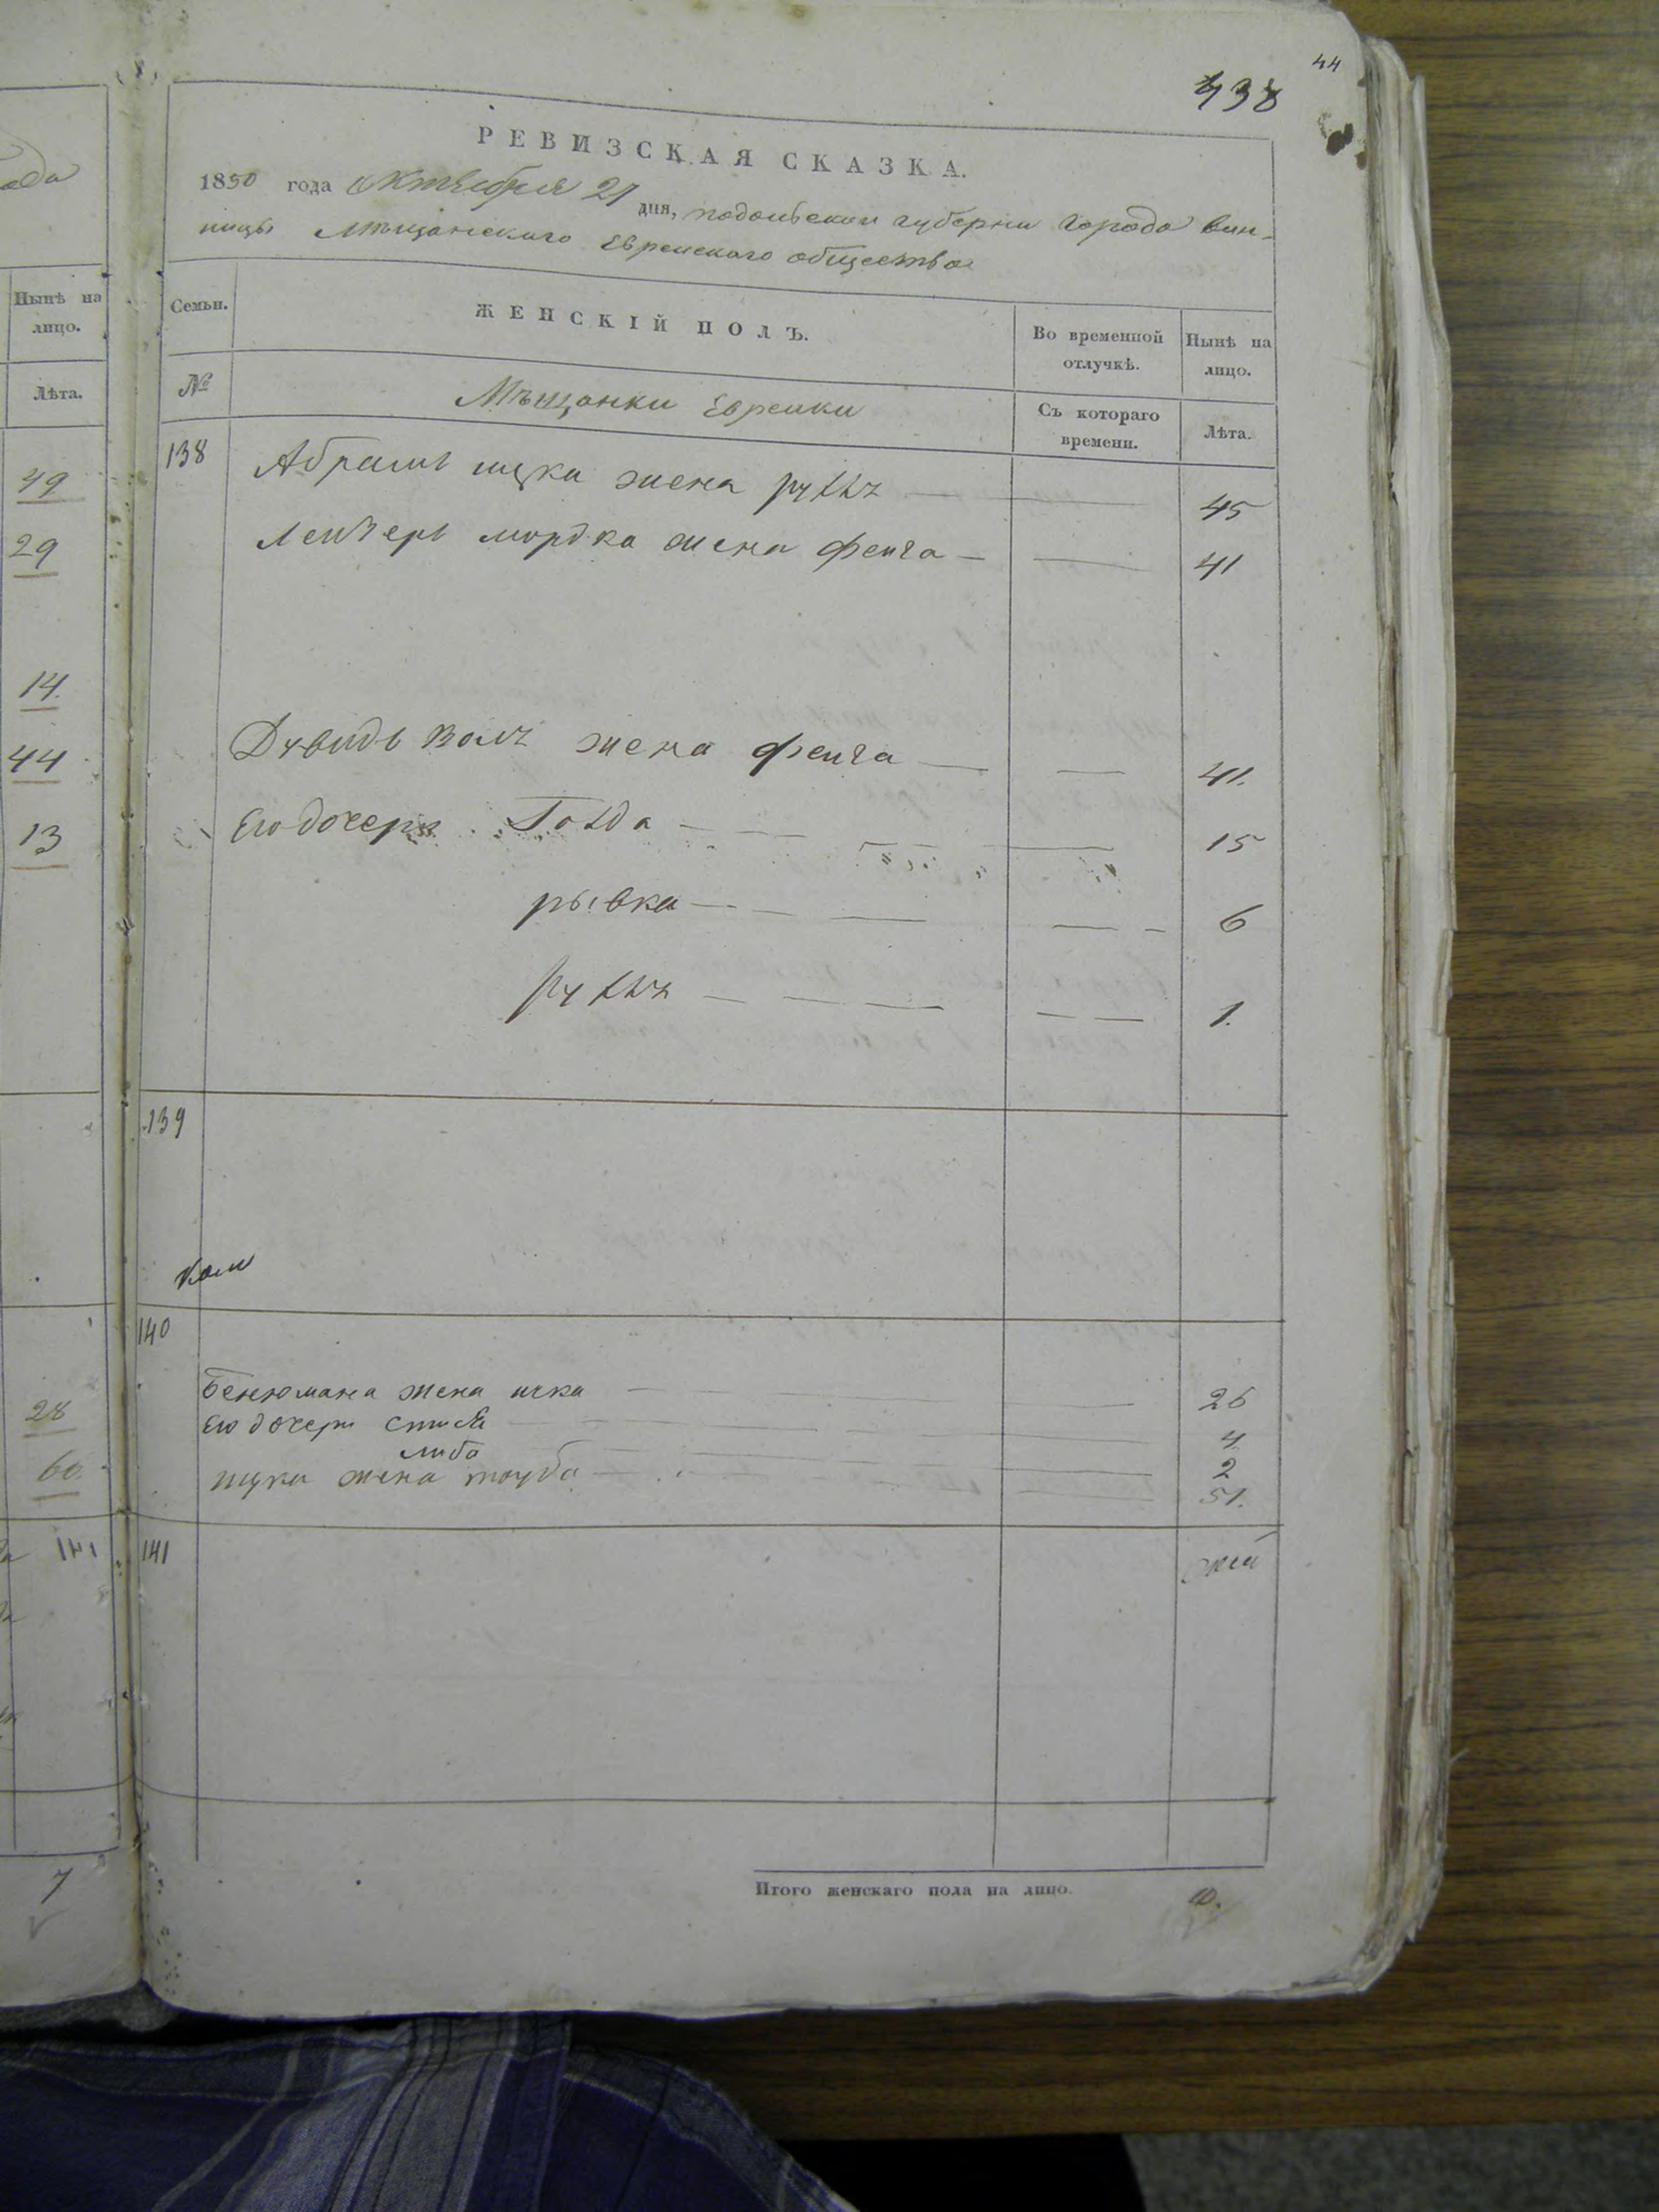 44
438
РЕВИЗСКАЯ СКАЗКА.
1850 года Октября 27 дня, подольской губернии города вин-
ницы Мѣщанского Еврейскаго общества
Нынѣ на
лицо.
Лѣта.
49
29
14.
44
13
28
60.
141
7
Семьи.
ЖЕНСКІЙ ПОЛЪ.
Во временной
отлучкѣ.
Нынѣ на
лицо.
№
Мѣщанки Еврейки
Съ котораго
времени.
Лѣта.
138
Абрамъ ицка жена рухля 45
Лейзеръ мордка жена фейга 41
Дувидъ Волъ жена фейга 41.
Его дочери Голда 15
рывка 6
рухля 1.
139
140
Бенюмана жена 26
Его дочери 4
либа 2
ицка жена тауба 51.
141
Итого женскаго пола на лицо. 10.